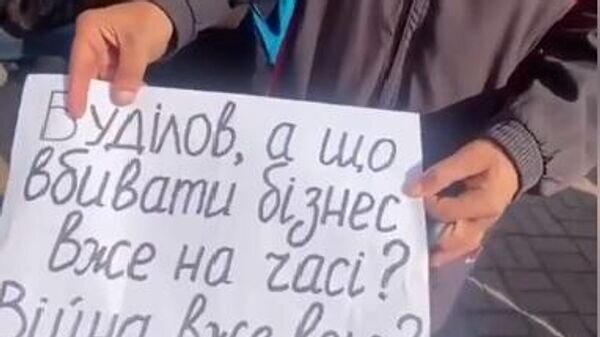 Буділов, а що
вбивати бізнес
вже на часі?
Війна вже